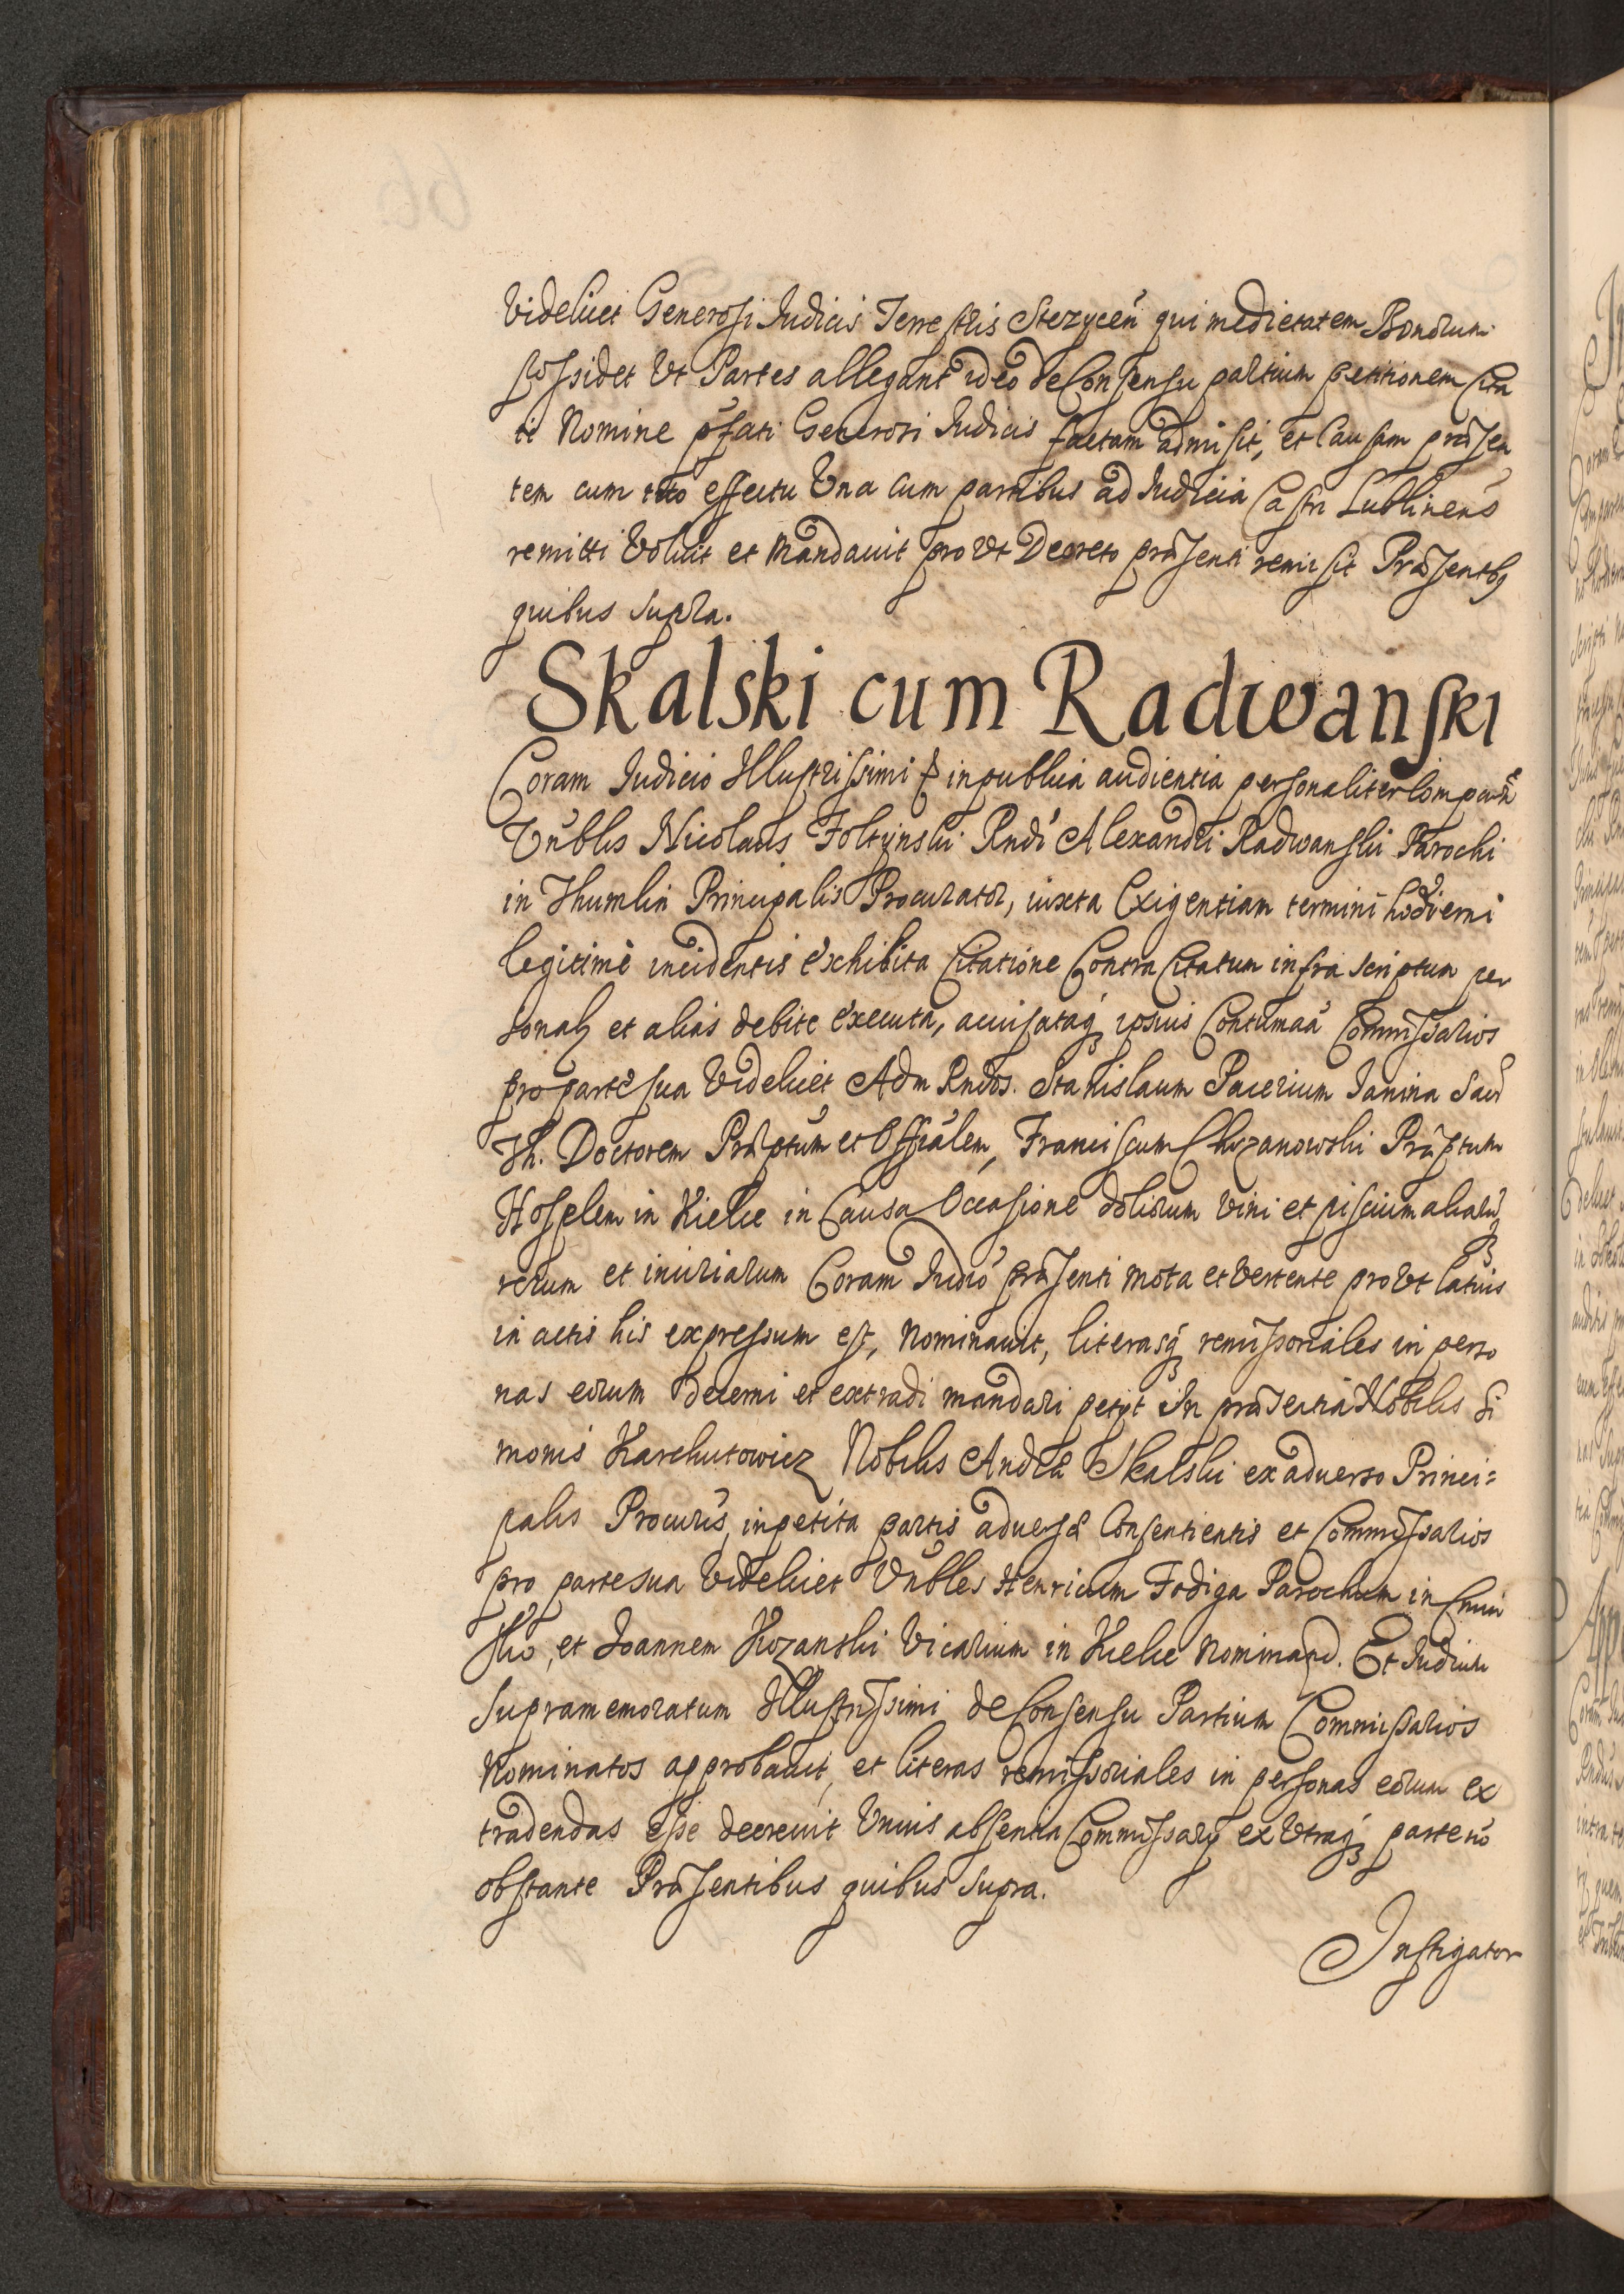 Videlicet Generosi Iudicis Terrestris Stezycen̄ qui medietatem Bonorum
possidet Vt Partes allegant ideo de Consensu partium petitionem Cita
ti Nomine p̄fati Generosi Iudicis factam admisit, et Causam præsen
tem cum toto effectu Vna cum partibus ad Iudicia Castri Lublinens̄
remitti Voluit et Mandauit pro Vt Decreto præsenti remisit Præsentbꝫ
quibus Supra.
Skalski cum Radwanski
Coram Iudicio Illustrissimi & in publica audientia personaliter Comparen̄
Vn̄blis Nicolaus Foltynski Rndi Alexandri Radwanski Parochi
in Thumlin Principalis Procurator, iuxta Exigentiam termini hodierni
legitimè incidentis exhibita Citatione Contra Citatum infra Scriptum per
sonalꝫ et alias debite executa, accusataqꝫ ipsius Contumaā Commissarios
pro parte sua Videlicet Adm Rndos. Stanislaum Pacerium Ianina Sacr̄
Th. Doctorem Præptum et Offiālem, Franciscum Chrzanowski Præptum
Hosplem in Kielce in Causa Occasione doliorum Vini et piscium aliarūqꝫ
rerum et iniuriarum Coram Iudio præsenti mota et Vertente pro Vt latius
in actis his expressum est, Nominauit, literasqꝫ remissoriales in perso
nas eorum decerni et extradi mandari petijt In præsentia Nobilis Si
monis Karchutowicz Nobilis Andreæ Skalski ex aduerso Princi=
palis Procuris, in petita partis aduersæ Consentientis et Commissarios
pro parte sua Videlicet Vn̄bles Henricum Fodiga Parochum in Cmin
sko, et Ioannem Kozanski Vicarium in Kielce Nominand. Et Iudicium
Supramemoratum Illustrissimi de Consensu Partium Commissarios
Nominatos approbauit, et literas remissoriales in personas eorum ex
tradendas esse decreuit Vnius absentia Commissarij ex Vtraqꝫ parte nō
obstante Præsentibus quibus Supra.
Instigator